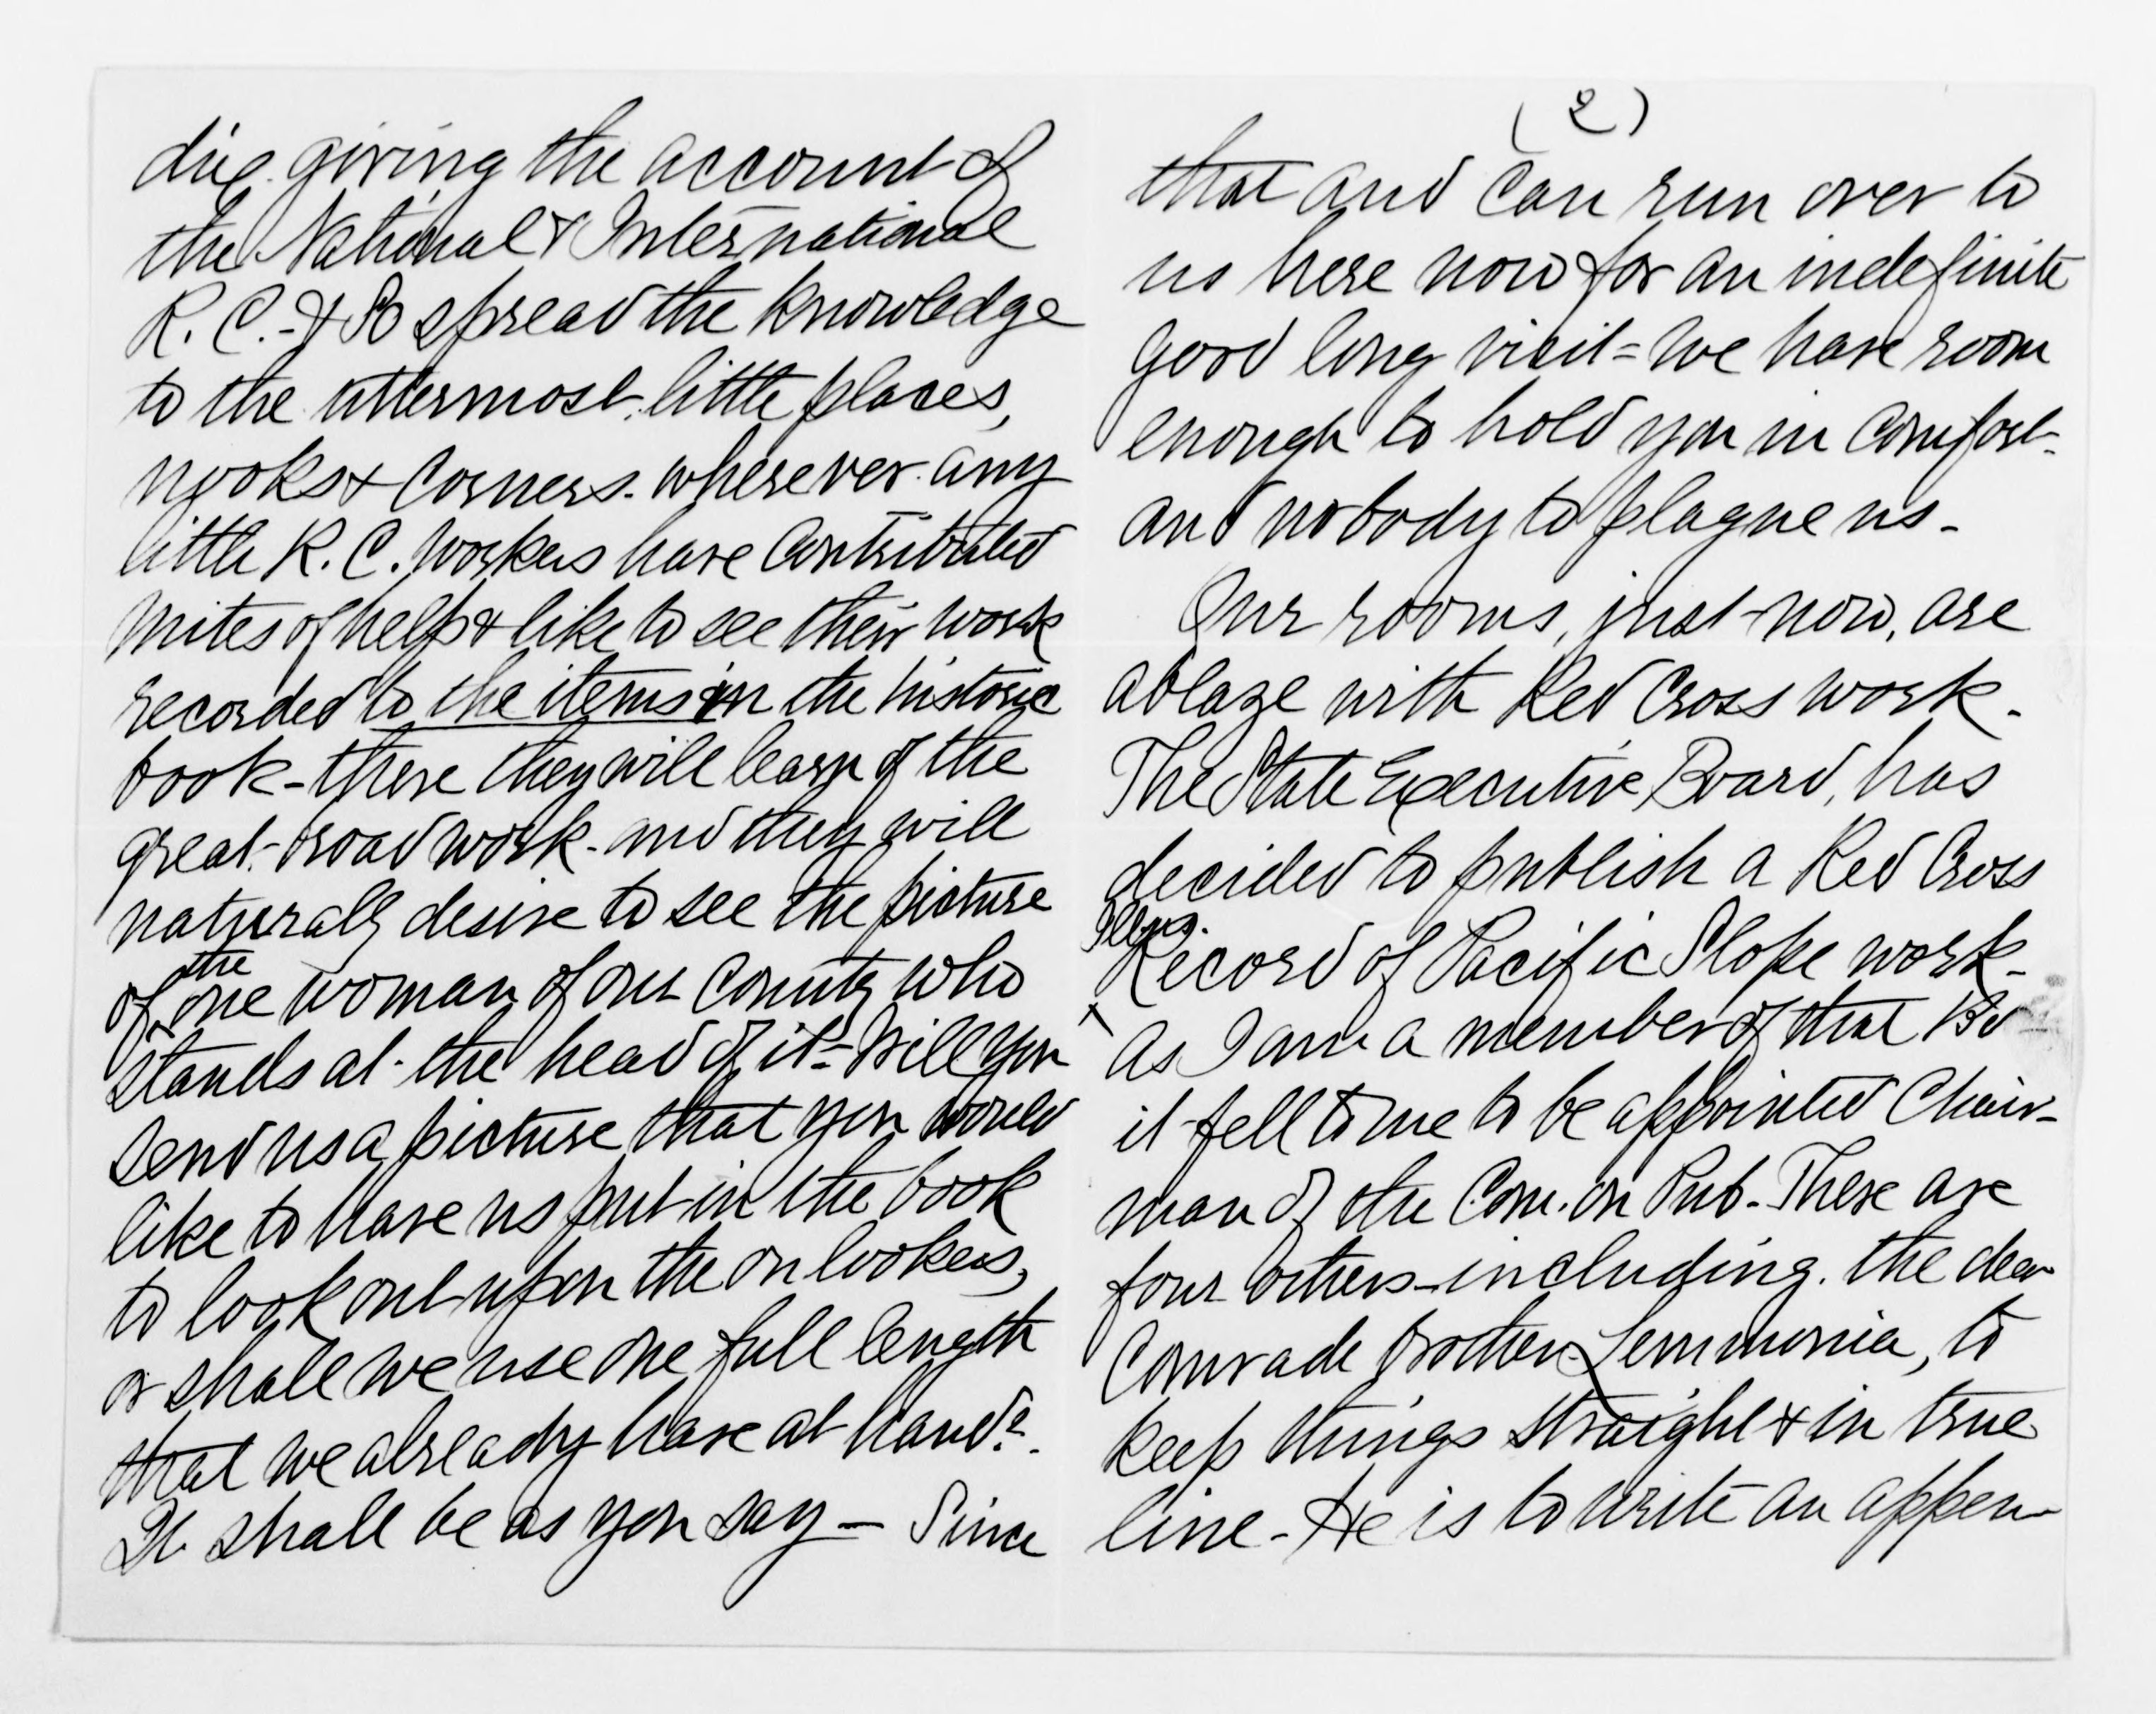 dix giving the account of
the National & International
R. C. - & so spread the knowledge
to the uttermost little places,
nooks & corners - wherever any
little R. C. workers have contributed
mites of help & like to see their work
recorded to the items in the historic
book - there they will learn of the
great broad work - and they will
naturally desire to see the picture
of the one woman of our county who
stands at the head of it = Will you
send us a picture that you would
like to have us put in the book
to look out upon the on lookers,
or shall we use one full length
that we already have at hand?
It shall be as you say — Since
(2)
that and can run over to
us here now for an indefinite
good long visit = We have room
enough to hold you in comfort -
and nobody to plague us -
Our rooms, just now, are
ablaze with Red Cross work -
The State Executive Board, has
decided to publish a Red Cross
Illus. Record of Pacific Slope work -
As I am a member of that Bd
it fell to me to be appointed Chair-
man of the Com. on Pub - There are
four others - including the dear
Comrade brother Lemmonia, to
keep things straight & in true
line - He is to write an appen-